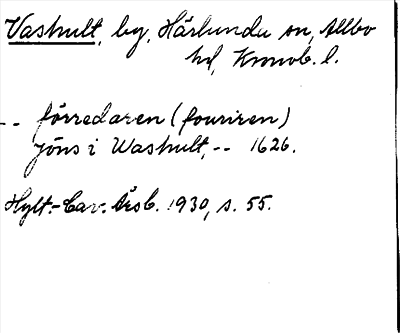 Vashult, by, Härlunda sn, Allbo
hd, Kronob. l.
-- förredaren (fouriren)
Jöns i Washult, -- 1626.
Hylt.-Cav. Årsb. 1930, s. 55.